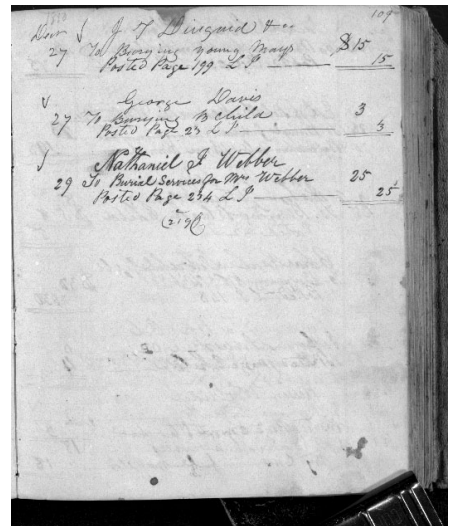 109
J T Dinguid & co
27 To Burying young Mays $15
Posted Page 199 L P 15
George Davis
27 To Burying B Child 3
Posted Page 23 L P 3
Nathaniel J Webber
29 To Burial Services for Mrs Webber 25
Posted Page 234 L P 25
(219)